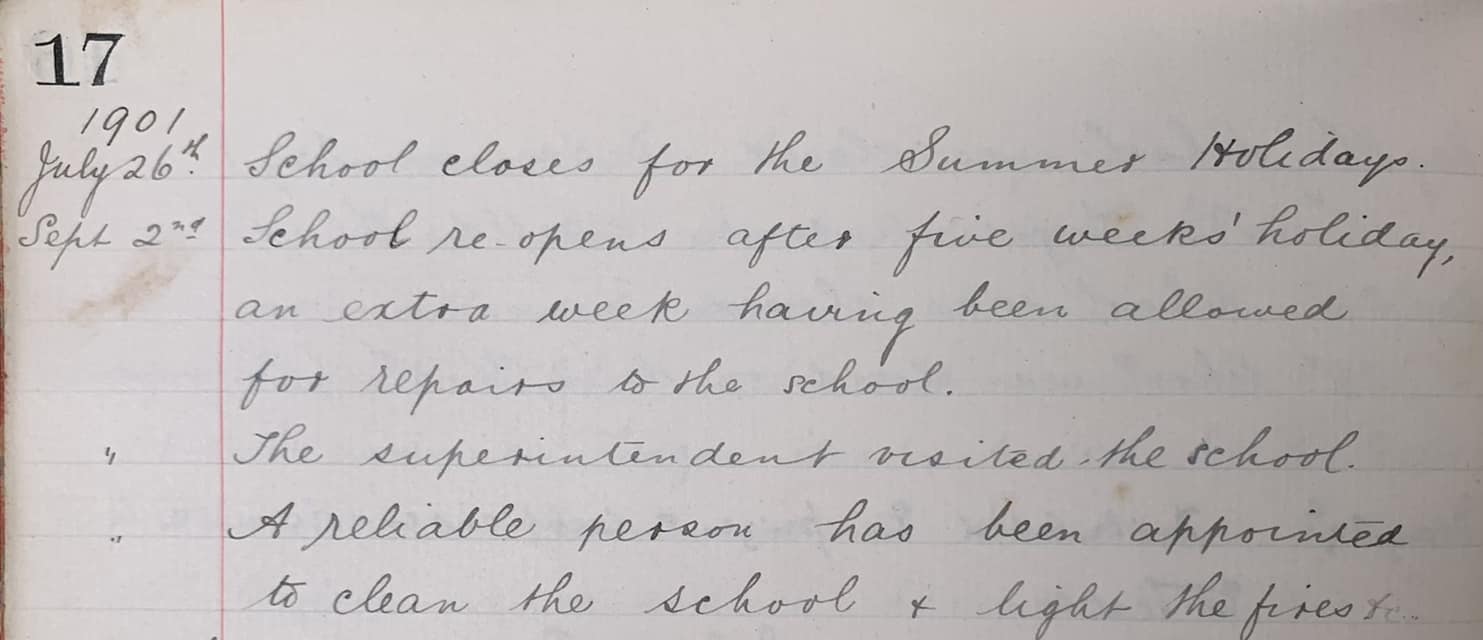 17
1901
July 26th. School closes for the Summer Holidays.
Sept 2nd School re-opens after five weeks' holiday,
an extra week having been allowed
for repairs to the school.
" The superintendent visited the school.
" A reliable person has been appointed
to clean the school & light the fires &c..